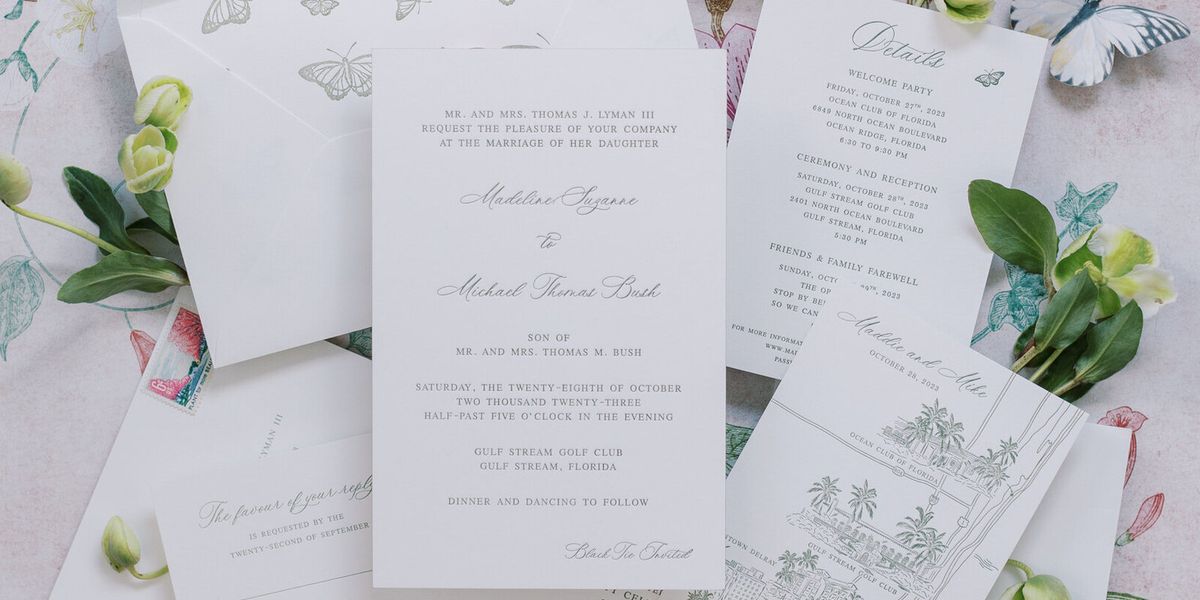 MR. AND MRS. THOMAS J. LYMAN III
REQUEST THE PLEASURE OF YOUR COMPANY
AT THE MARRIAGE OF HER DAUGHTER
Madeline Suzanne
to
Michael Thomas Bush
SON OF
MR. AND MRS. THOMAS M. BUSH
SATURDAY, THE TWENTY-EIGHTH OF OCTOBER
TWO THOUSAND TWENTY-THREE
HALF-PAST FIVE O'CLOCK IN THE EVENING
GULF STREAM GOLF CLUB
GULF STREAM, FLORIDA
DINNER AND DANCING TO FOLLOW
Black Tie Invited
Details
WELCOME PARTY
FRIDAY, OCTOBER 27TH, 2023
OCEAN CLUB OF FLORIDA
6849 NORTH OCEAN BOULEVARD
OCEAN RIDGE, FLORIDA
6:30 TO 9:30 PM
CEREMONY AND RECEPTION
SATURDAY, OCTOBER 28TH, 2023
GULF STREAM GOLF CLUB
2401 NORTH OCEAN BOULEVARD
GULF STREAM, FLORIDA
5:30 PM
FRIENDS & FAMILY FAREWELL
SUNDAY, 2023
THE
STOP BY
SO WE CAN
FOR MORE
Maddie and Mike
OCTOBER 28, 2023
OCEAN CLUB OF FLORIDA
GULF STREAM GOLF CLUB
DELRAY
LYMAN III
The favour of your reply
IS REQUESTED BY THE
TWENTY-SECOND OF SEPTEMBER